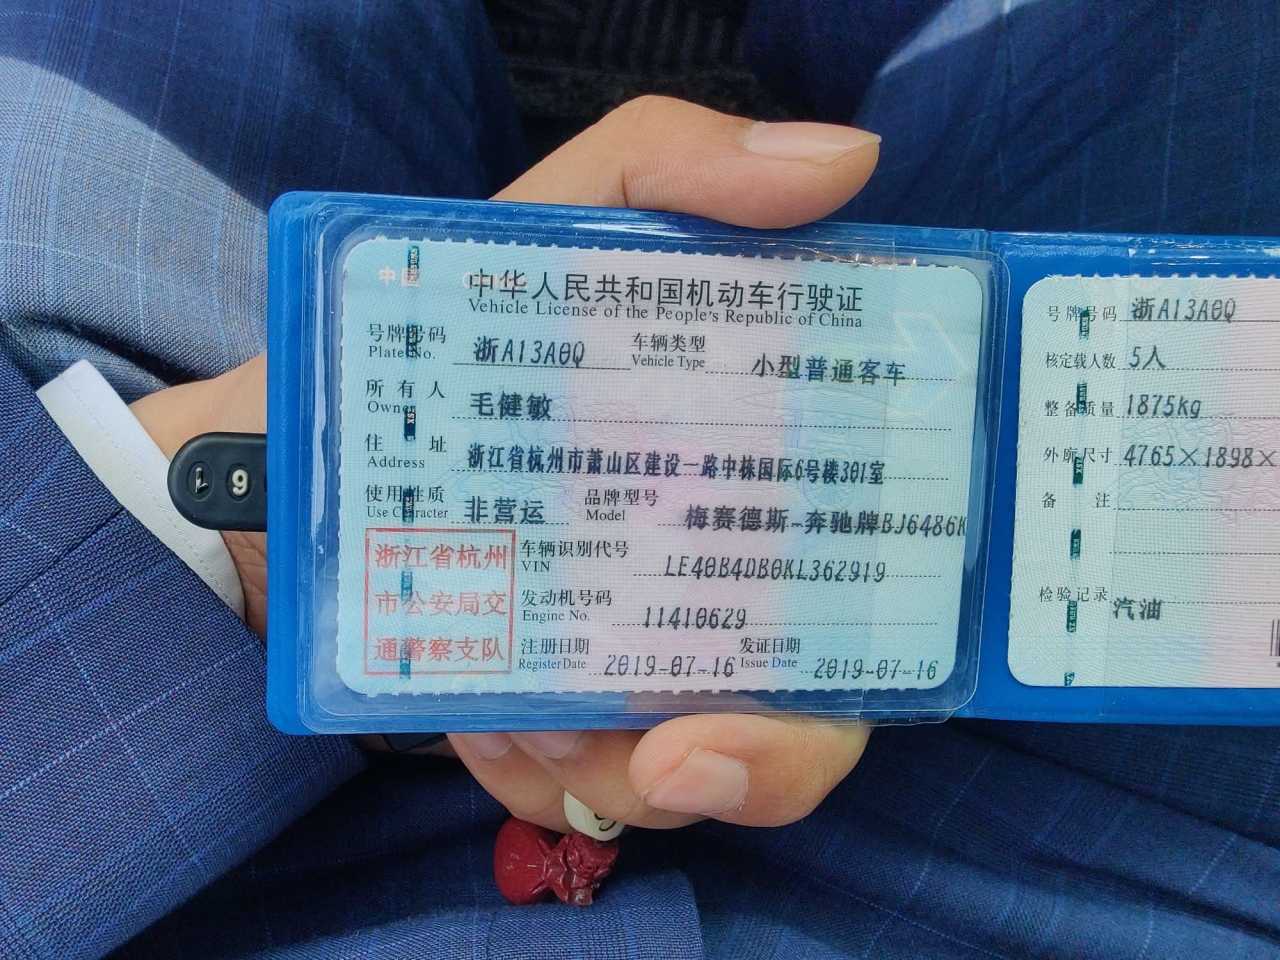 中国
中华人民共和国机动车行驶证
Vehicle License of the People's Republic of China
号牌号码 浙A13A0Q 车辆类型 小型普通客车
Plate No. Vehicle Type
所有人 毛健敏
Owner
住址 浙江省杭州市萧山区建设一路中栋国际6号楼301室
Address
使用性质 非营运 品牌型号 梅赛德斯-奔驰牌BJ6486K
Use Character Model
浙江省杭州
市公安局交
通警察支队
车辆识别代号 LE40B4DB0KL362919
VIN
发动机号码 11410629
Engine No.
注册日期 2019-07-16 发证日期 2019-07-16
Register Date Issue Date
号牌号码 浙A13A0Q
核定载人数 5人
整备质量 1875kg
外廓尺寸 4765×1898×
备注
检验记录 汽油
9